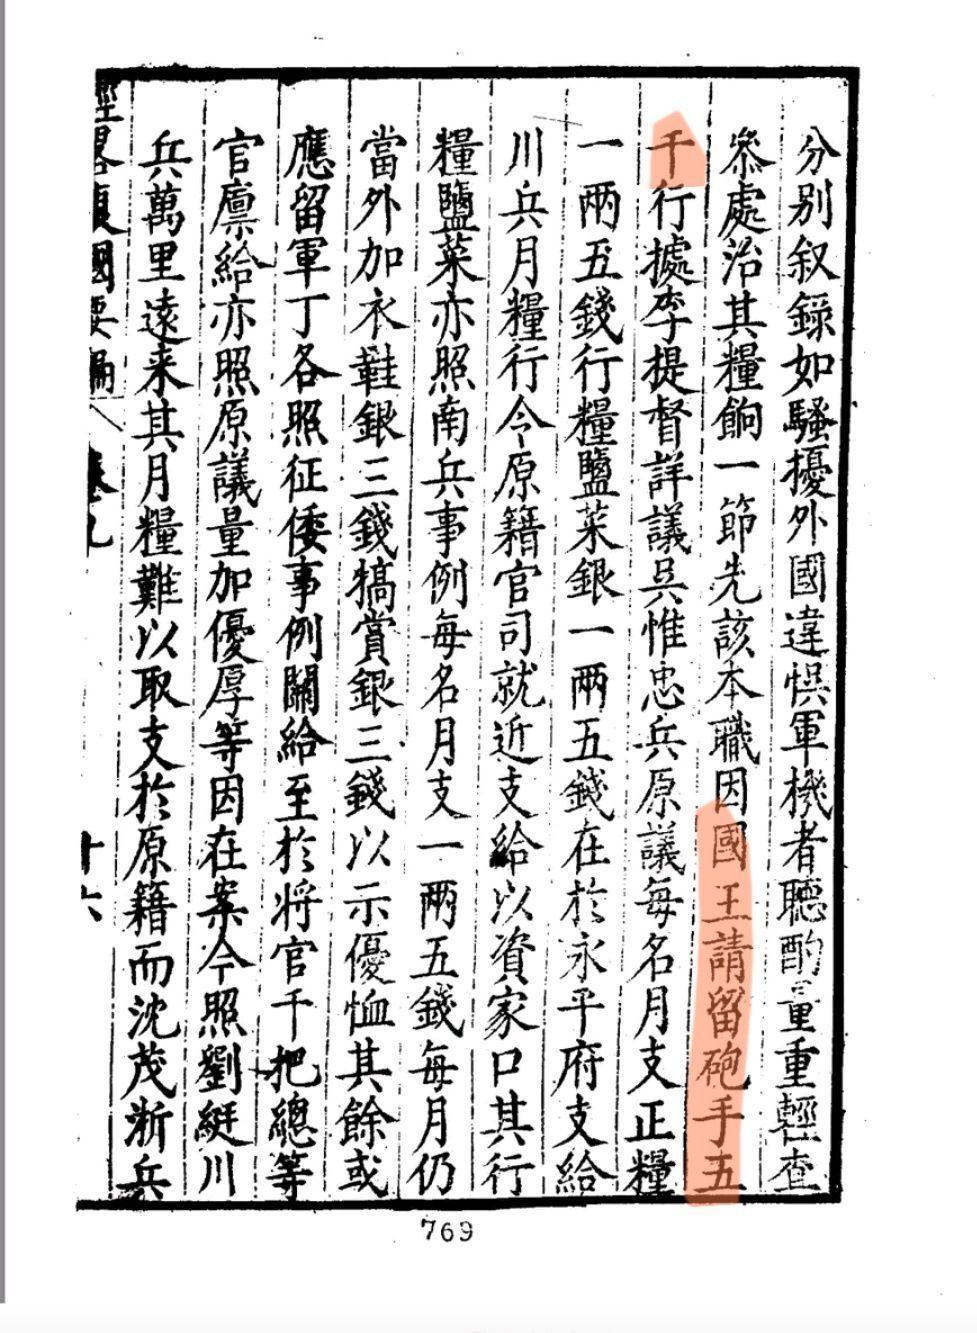 分别叙錄如騷擾外國違悞軍機者聽酌量重輕查
叅處治其糧餉一節先該本職因國王請留砲手五
千行據李提督詳議吳惟忠兵原議每名月支正糧
一兩五錢行糧鹽菜銀一兩五錢在於永平府支給
川兵月糧行令原籍官司就近支給以資家口其行
糧鹽菜亦照南兵事例每名月支一兩五錢每月仍
當外加衣鞋銀三錢犒賞銀三錢以示優恤其餘或
應留軍丁各照征倭事例關給至於將官千把總等
官廪給亦照原議量加優厚等因在案今照劉綎川
兵萬里遠来其月糧難以取支於原籍而沈茂浙兵
經畧復國要編 卷九 十六
769